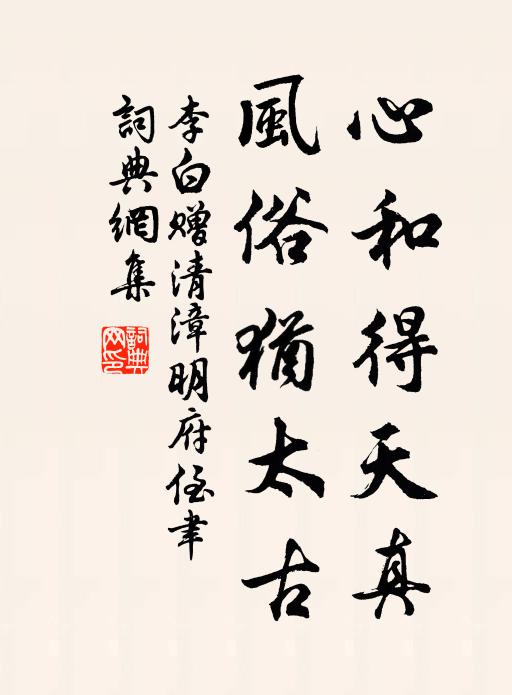 心和得天真
風俗猶太古
李白赠清漳明府侄聿
詞典網集
詞典
网印